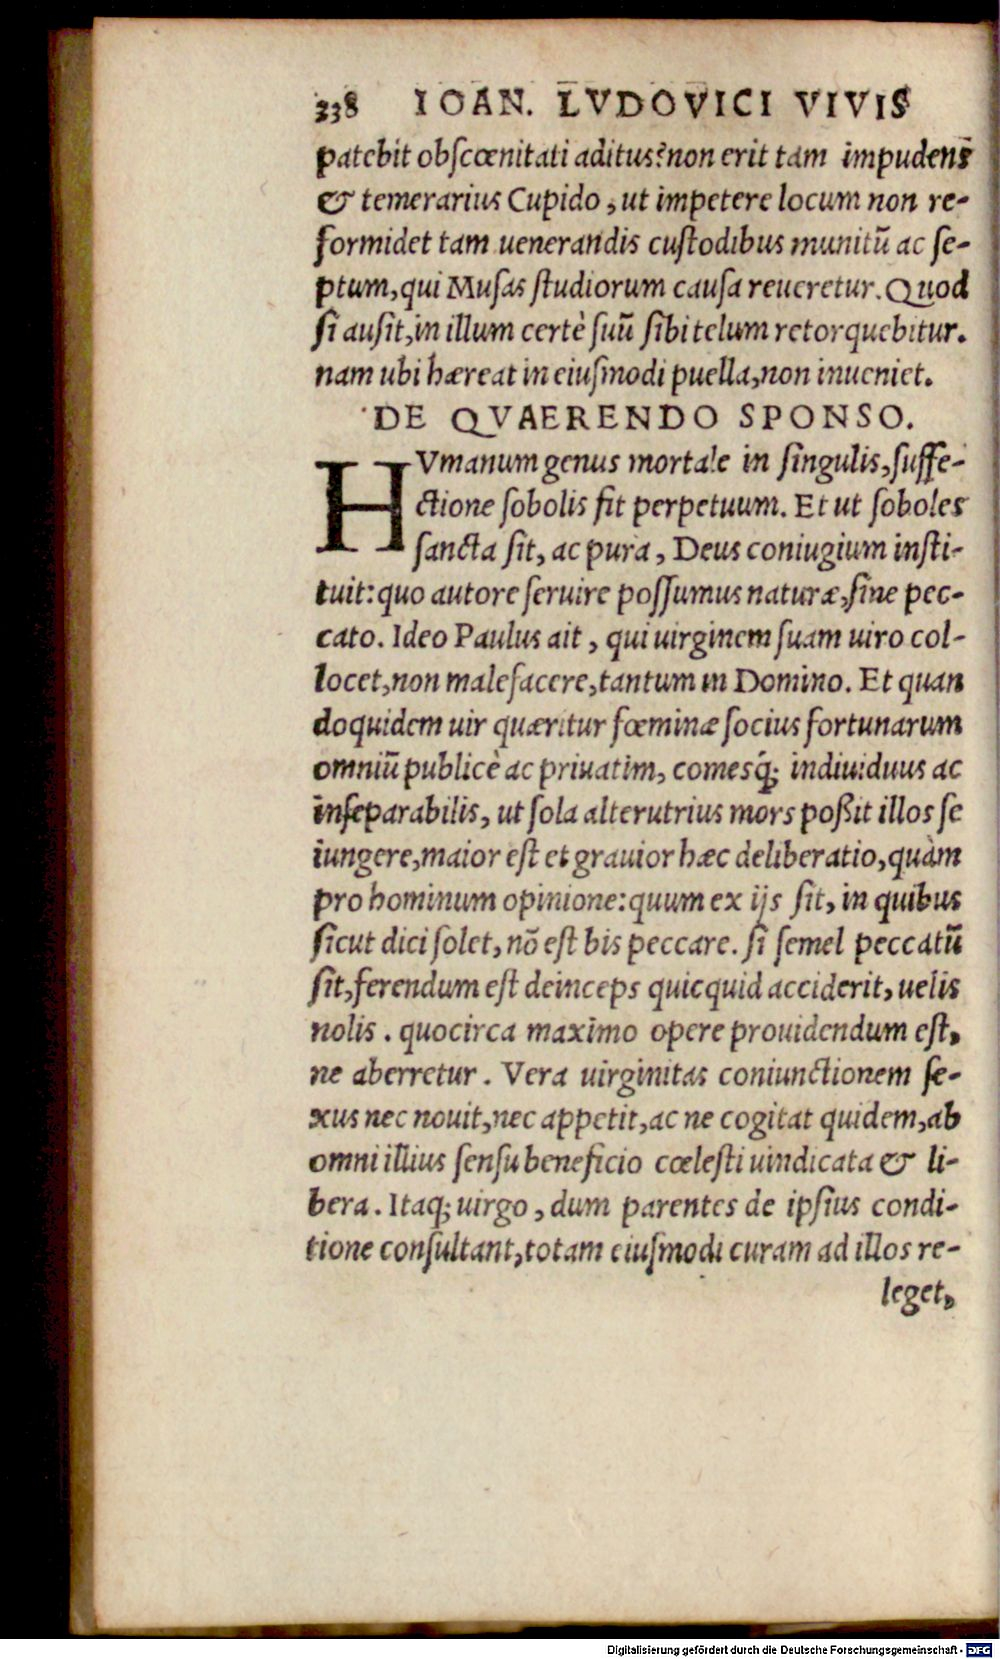 238 IOAN. LVDOVICI VIVIS
patebit obscœnitati aditus? non erit tam impudens
& temerarius Cupido, ut impetere locum non re-
formidet tam uenerandis custodibus munitū ac se-
ptum, qui Musas studiorum causa reueretur. Quod
si ausit, in illum certè suū sibi telum retorquebitur.
nam ubi hæreat in eiusmodi puella, non inueniet.
DE QVAERENDO SPONSO.
HVmanum genus mortale in singulis, suffe-
ctione sobolis fit perpetuum. Et ut soboles
sancta sit, ac pura, Deus coniugium insti-
tuit: quo autore seruire possumus naturæ, sine pec-
cato. Ideo Paulus ait, qui uirginem suam uiro col-
locet, non male facere, tantum in Domino. Et quan
doquidem uir quæritur fœminæ socius fortunarum
omniū publicè ac priuatim, comesq́; indiuiduus ac
inseparabilis, ut sola alterutrius mors poßit illos se
iungere, maior est et grauior hæc deliberatio, quàm
pro hominum opinione: quum ex ijs sit, in quibus
sicut dici solet, nō est bis peccare. si semel peccatū
sit, ferendum est deinceps quicquid acciderit, uelis
nolis. quocirca maximo opere prouidendum est,
ne aberretur. Vera uirginitas coniunctionem se-
xus nec nouit, nec appetit, ac ne cogitat quidem, ab
omni illius sensu beneficio cœlesti uindicata & li-
bera. Itaq; uirgo, dum parentes de ipsius condi-
tione consultant, totam eiusmodi curam ad illos re-
leget,
Digitalisierung gefördert durch die Deutsche Forschungsgemeinschaft - DFG